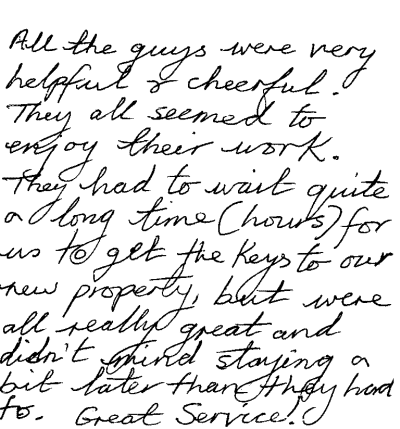 All the guys were very
helpful & cheerful.
They all seemed to
enjoy their work.
They had to wait quite
a long time (hours) for
us to get the keys to our
new property, but were
all really great and
didn't mind staying a
bit later than they had
to. Great Service!